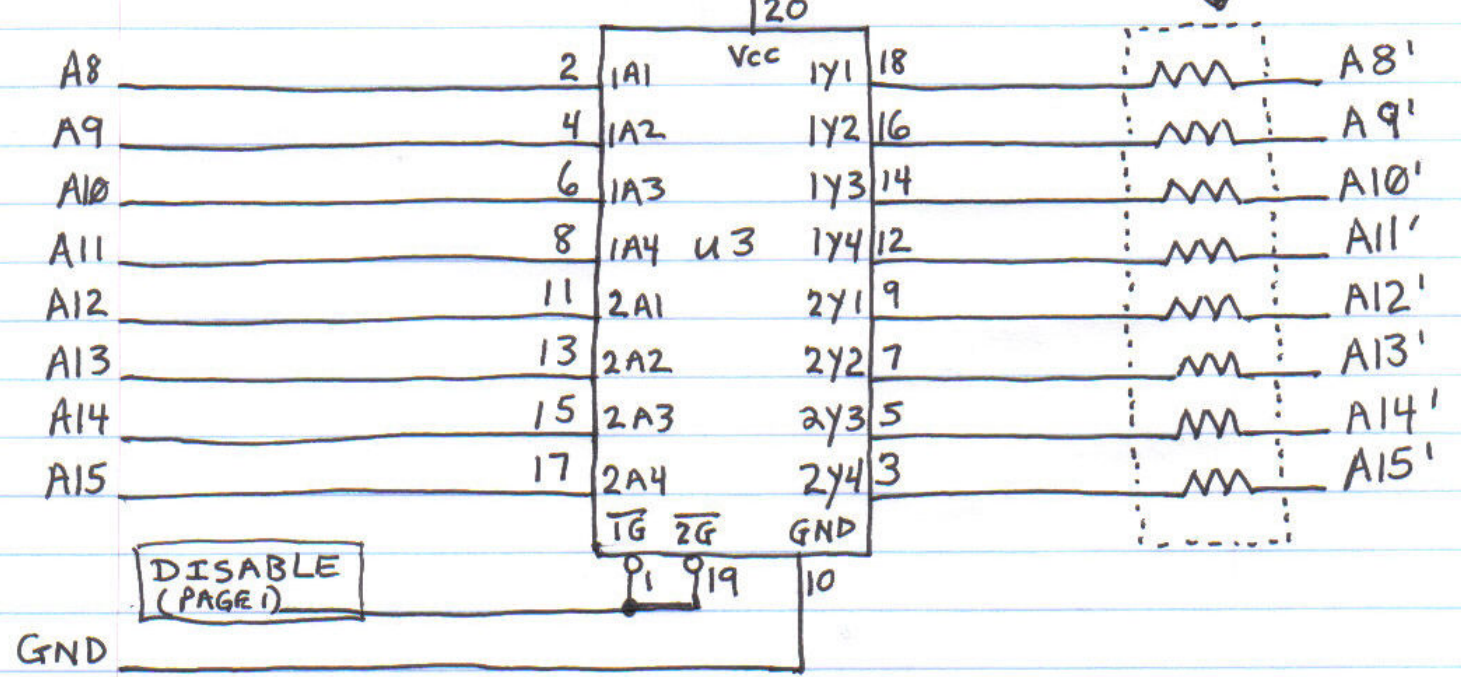 20
Vcc
A8 2 1A1 1Y1 18 A8'
A9 4 1A2 1Y2 16 A9'
A10 6 1A3 1Y3 14 A10'
A11 8 1A4 U3 1Y4 12 A11'
A12 11 2A1 2Y1 9 A12'
A13 13 2A2 2Y2 7 A13'
A14 15 2A3 2Y3 5 A14'
A15 17 2A4 2Y4 3 A15'
1G 2G GND
DISABLE 1 19 10
(PAGE 1)
GND